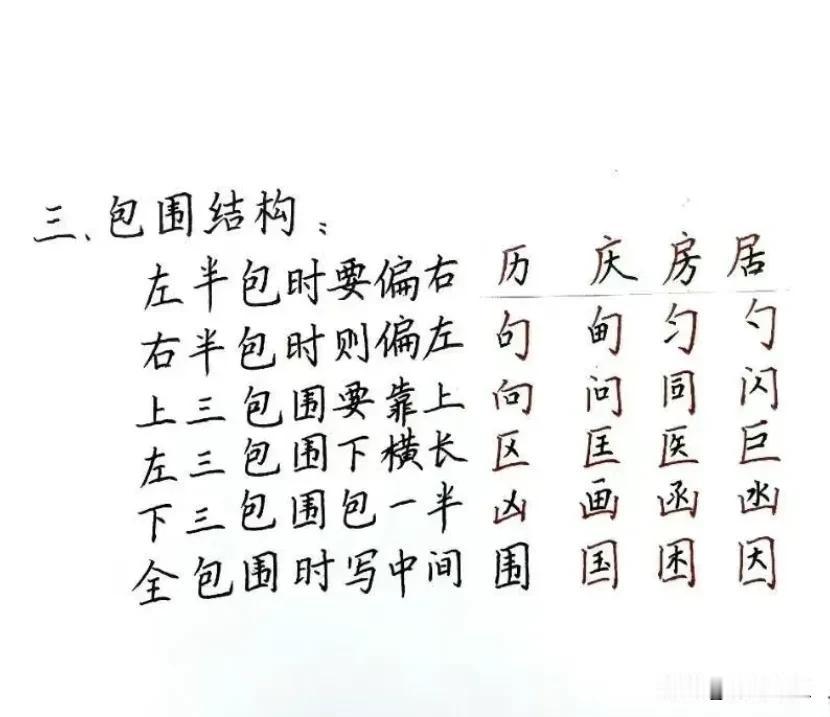 三、包围结构：
左半包时要偏右 历 庆 房 居
右半包时则偏左 句 甸 匀 勺
上三包围要靠上 向 问 同 闪
左三包围下横长 区 匡 医 巨
下三包围包一半 凶 画 函 凼
全包围时写中间 围 国 困 因